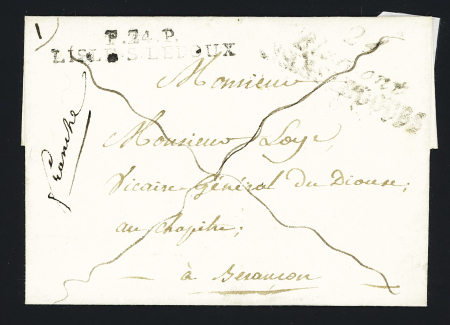 1
P.24.P.
LISLE-S-LEDOUX
Monsieur
Franche
Monsieur Loye,
Vicaire Général du Diocese;
au chapitre;
à Besançon